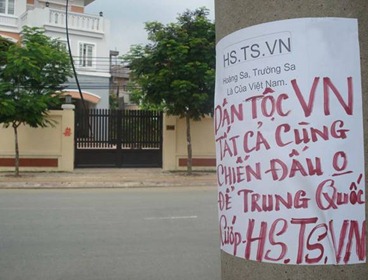 HS.TS.VN
Hoàng Sa, Trường Sa
Là Của Việt Nam.
DÂN TỘC VN
TẤT CẢ CÙNG
CHIẾN ĐẤU O
ĐỂ TRUNG QUỐC
CƯỚP. HS.TS.VN